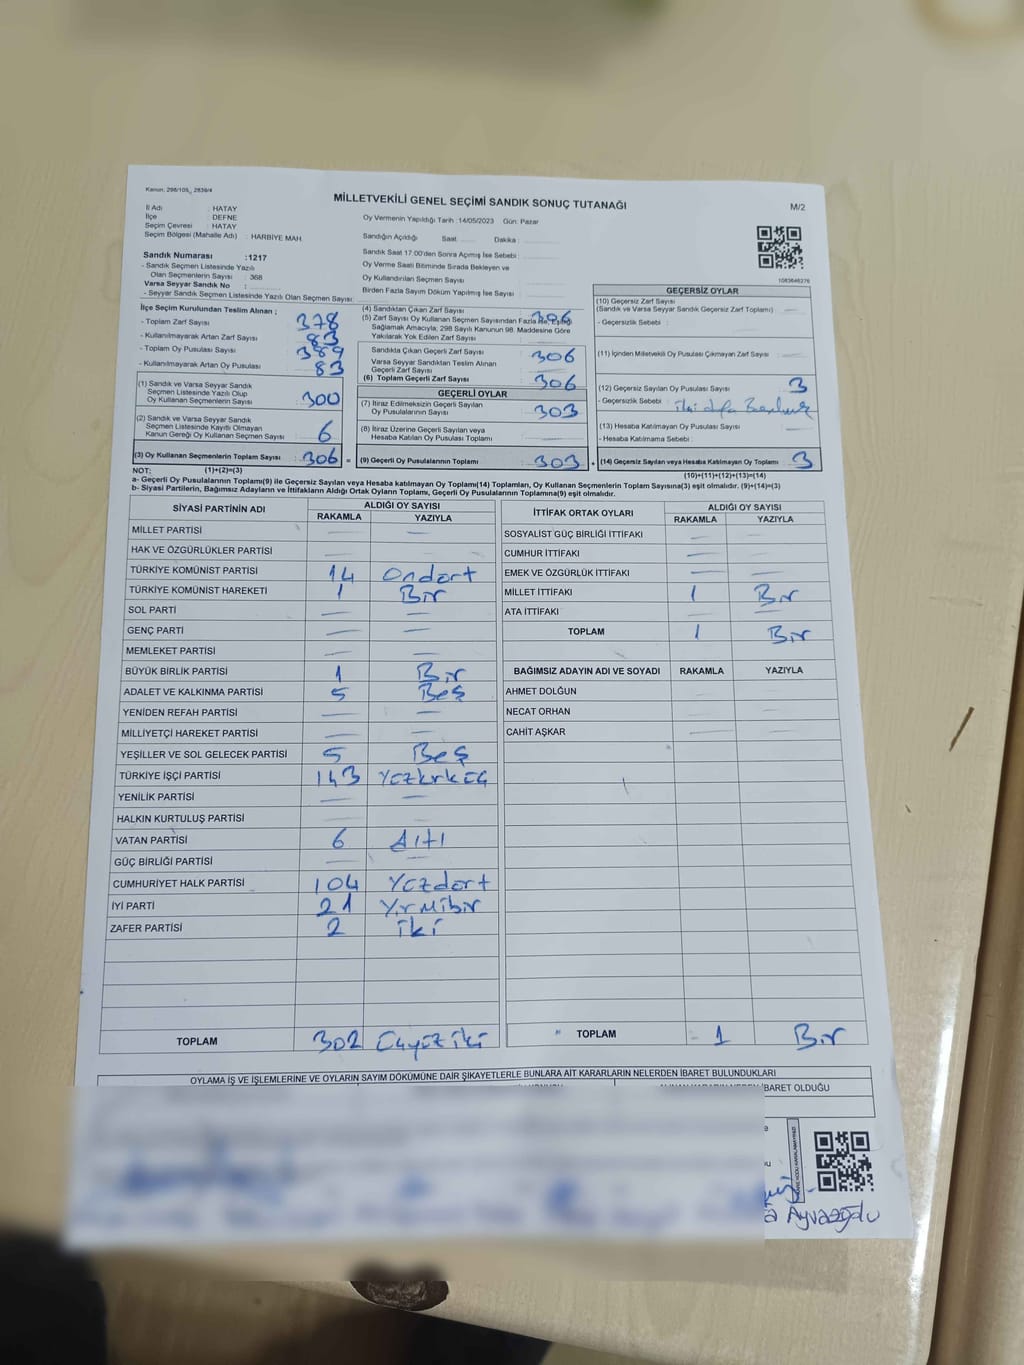 Kanun: 298/105, 2839/4
MİLLETVEKİLİ GENEL SEÇİMİ SANDIK SONUÇ TUTANAĞI
M/2
İl Adı : HATAY
İlçe : DEFNE
Seçim Çevresi : HATAY
Seçim Bölgesi (Mahalle Adı) : HARBİYE MAH.
Oy Vermenin Yapıldığı Tarih :14/05/2023 Gün: Pazar
Sandığın Açıldığı Saat Dakika :
Sandık Saat 17.00'den Sonra Açılmış İse Sebebi :
Oy Verme Saati Bitiminde Sırada Bekleyen ve
Oy Kullandırılan Seçmen Sayısı
Birden Fazla Sayım Döküm Yapılmış İse Sayısı
1083646276
Sandık Numarası :1217
- Sandık Seçmen Listesinde Yazılı
Olan Seçmenlerin Sayısı : 368
Varsa Seyyar Sandık No :
- Seyyar Sandık Seçmen Listesinde Yazılı Olan Seçmen Sayısı:
İlçe Seçim Kurulundan Teslim Alınan ;
- Toplam Zarf Sayısı 378
- Kullanılmayarak Artan Zarf Sayısı 83
- Toplam Oy Pusulası Sayısı 389
- Kullanılmayarak Artan Oy Pusulası 83
(1) Sandık ve Varsa Seyyar Sandık
Seçmen Listesinde Yazılı Olup
Oy Kullanan Seçmenlerin Sayısı 300
(2) Sandık ve Varsa Seyyar Sandık
Seçmen Listesinde Kayıtlı Olmayan
Kanun Gereği Oy Kullanan Seçmen Sayısı 6
(3) Oy Kullanan Seçmenlerin Toplam Sayısı 306 =
(4) Sandıktan Çıkan Zarf Sayısı 306
(5) Zarf Sayısı Oy Kullanan Seçmen Sayısından Fazla ise, Eşitliği
Sağlamak Amacıyla; 298 Sayılı Kanunun 98. Maddesine Göre
Yakılarak Yok Edilen Zarf Sayısı
Sandıkta Çıkan Geçerli Zarf Sayısı 306
Varsa Seyyar Sandıktan Teslim Alınan
Geçerli Zarf Sayısı
(6) Toplam Geçerli Zarf Sayısı 306
GEÇERLİ OYLAR
(7) İtiraz Edilmeksizin Geçerli Sayılan
Oy Pusulalarının Sayısı 303
(8) İtiraz Üzerine Geçerli Sayılan veya
Hesaba Katılan Oy Pusulası Toplamı
(9) Geçerli Oy Pusulalarının Toplamı 303 +
GEÇERSİZ OYLAR
(10) Geçersiz Zarf Sayısı
(Sandık ve Varsa Seyyar Sandık Geçersiz Zarf Toplamı)
- Geçersizlik Sebebi :
(11) İçinden Milletvekili Oy Pusulası Çıkmayan Zarf Sayısı
(12) Geçersiz Sayılan Oy Pusulası Sayısı 3
- Geçersizlik Sebebi :
(13) Hesaba Katılmayan Oy Pusulası Sayısı
- Hesaba Katılmama Sebebi :
(14) Geçersiz Sayılan veya Hesaba Katılmayan Oy Toplamı 3
NOT: (1)+(2)=(3)
(10)+(11)+(12)+(13)=(14)
a- Geçerli Oy Pusulalarının Toplamı(9) ile Geçersiz Sayılan veya Hesaba katılmayan Oy Toplamı(14) Toplamları, Oy Kullanan Seçmenlerin Toplam Sayısına(3) eşit olmalıdır. (9)+(14)=(3)
b- Siyasi Partilerin, Bağımsız Adayların ve İttifakların Aldığı Ortak Oyların Toplamı, Geçerli Oy Pusulalarının Toplamına(9) eşit olmalıdır.
SİYASİ PARTİNİN ADI ALDIĞI OY SAYISI
RAKAMLA YAZIYLA
MİLLET PARTİSİ
HAK VE ÖZGÜRLÜKLER PARTİSİ
TÜRKİYE KOMÜNİST PARTİSİ 14 Ondört
TÜRKİYE KOMÜNİST HAREKETİ 1 Bir
SOL PARTİ
GENÇ PARTİ
MEMLEKET PARTİSİ
BÜYÜK BİRLİK PARTİSİ 1 Bir
ADALET VE KALKINMA PARTİSİ 5 Beş
YENİDEN REFAH PARTİSİ
MİLLİYETÇİ HAREKET PARTİSİ
YEŞİLLER VE SOL GELECEK PARTİSİ 5 Beş
TÜRKİYE İŞÇİ PARTİSİ 143 Yüzkırküç
YENİLİK PARTİSİ
HALKIN KURTULUŞ PARTİSİ
VATAN PARTİSİ 6 Altı
GÜÇ BİRLİĞİ PARTİSİ
CUMHURİYET HALK PARTİSİ 104 Yüzdört
İYİ PARTİ 21 Yirmibir
ZAFER PARTİSİ 2 iki
TOPLAM 302 Üçyüziki
İTTİFAK ORTAK OYLARI ALDIĞI OY SAYISI
RAKAMLA YAZIYLA
SOSYALİST GÜÇ BİRLİĞİ İTTİFAKI
CUMHUR İTTİFAKI
EMEK VE ÖZGÜRLÜK İTTİFAKI
MİLLET İTTİFAKI 1 Bir
ATA İTTİFAKI
TOPLAM 1 Bir
BAĞIMSIZ ADAYIN ADI VE SOYADI RAKAMLA YAZIYLA
AHMET DOLĞUN
NECAT ORHAN
CAHİT AŞKAR
TOPLAM 1 Bir
OYLAMA İŞ VE İŞLEMLERİNE VE OYLARIN SAYIM DÖKÜMÜNE DAİR ŞİKAYETLERLE BUNLARA AİT KARARLARIN NELERDEN İBARET BULUNDUKLARI
İBARET OLDUĞU
Ayvazoğlu